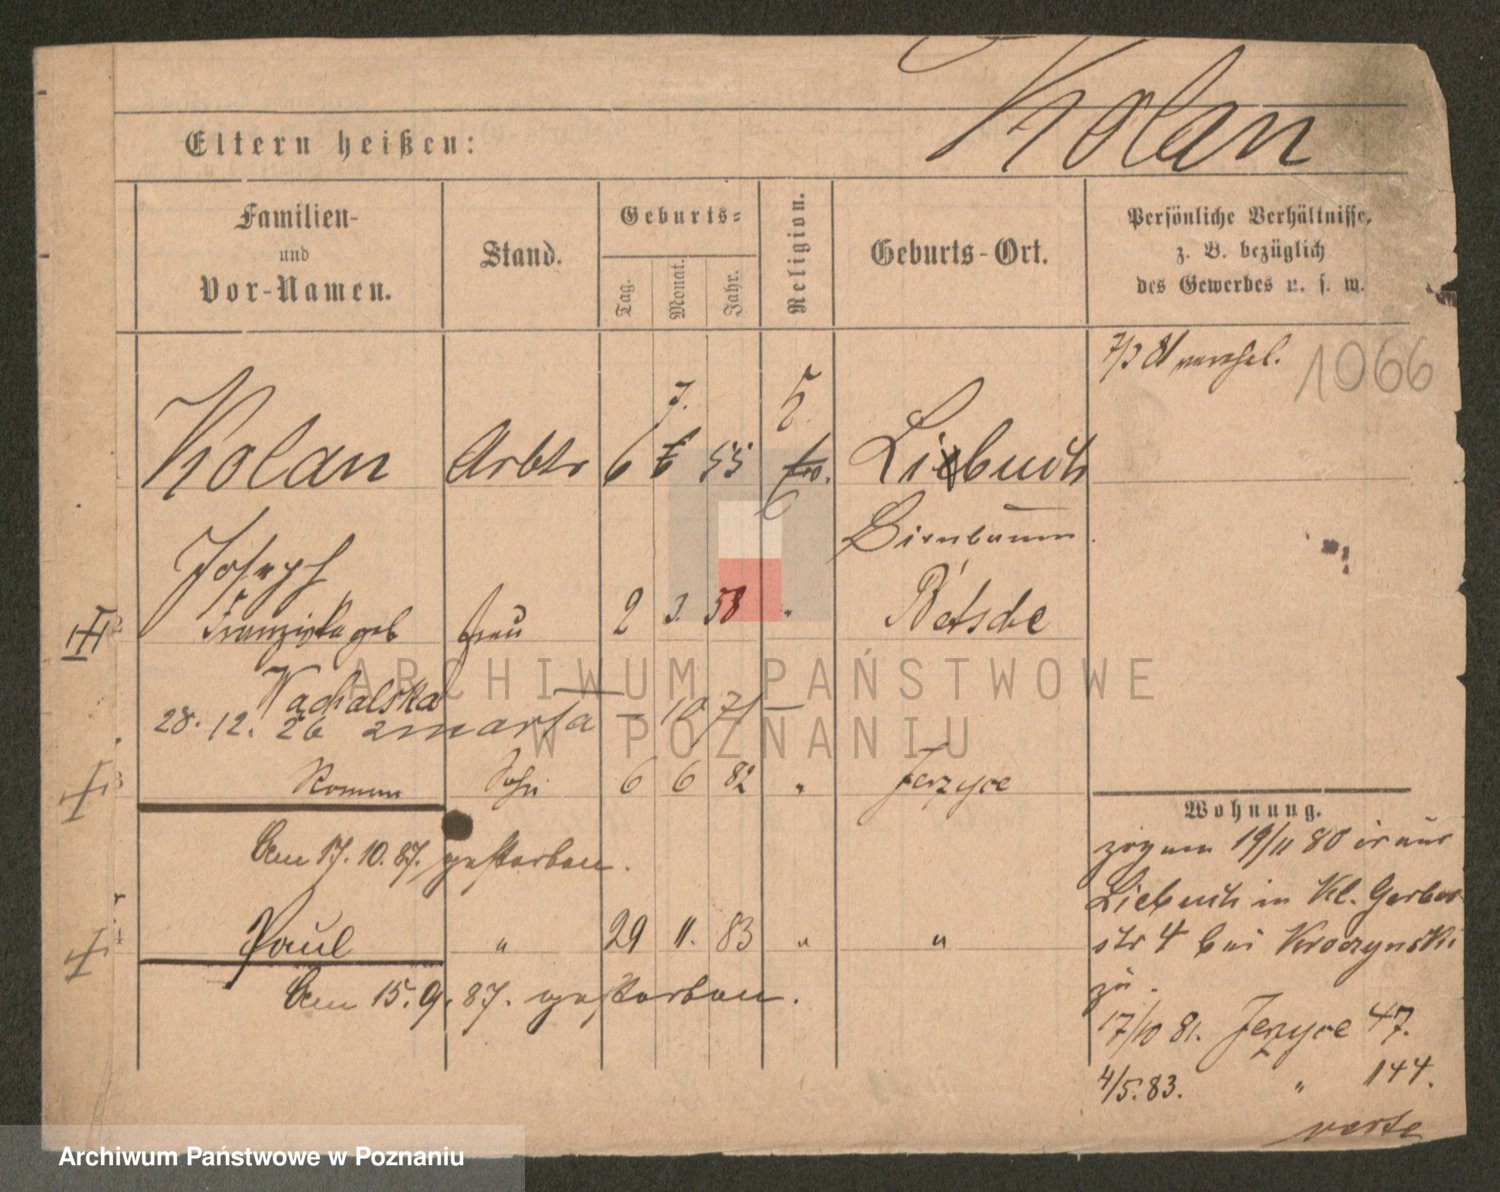 Kolan
Eltern heißen:
Familien-
und
Vor-Namen.
Stand.
Geburts-
Tag.
Monat.
Jahr.
Religion.
Geburts-Ort.
Persönliche Verhältnisse,
z. B. bezüglich
des Gewerbes u. s. w.
7/3 81 verehel.
1066
7.
Kolan Arbtr 6 55 Liebuch
Birnbaum
Joseph
Franziska geb Frau 2 3. 58 Betsche
Wachalska
28. 12. 26 zmarła
Roman Sohn 6 6 82 " Jerzyce
Den 17. 10. 87. gestorben.
Paul " 29 11. 83 " "
Den 15. 9. 87. gestorben.
Wohnung.
zog am 19/11 80 aus
Liebuch in Kl. Gerber
str 4 bei Kroczynski
zu.
17/10 81. Jerzyce 47.
4/5. 83. " 144.
verte
ARCHIWUM PAŃSTWOWE
W POZNANIU
Archiwum Państwowe w Poznaniu